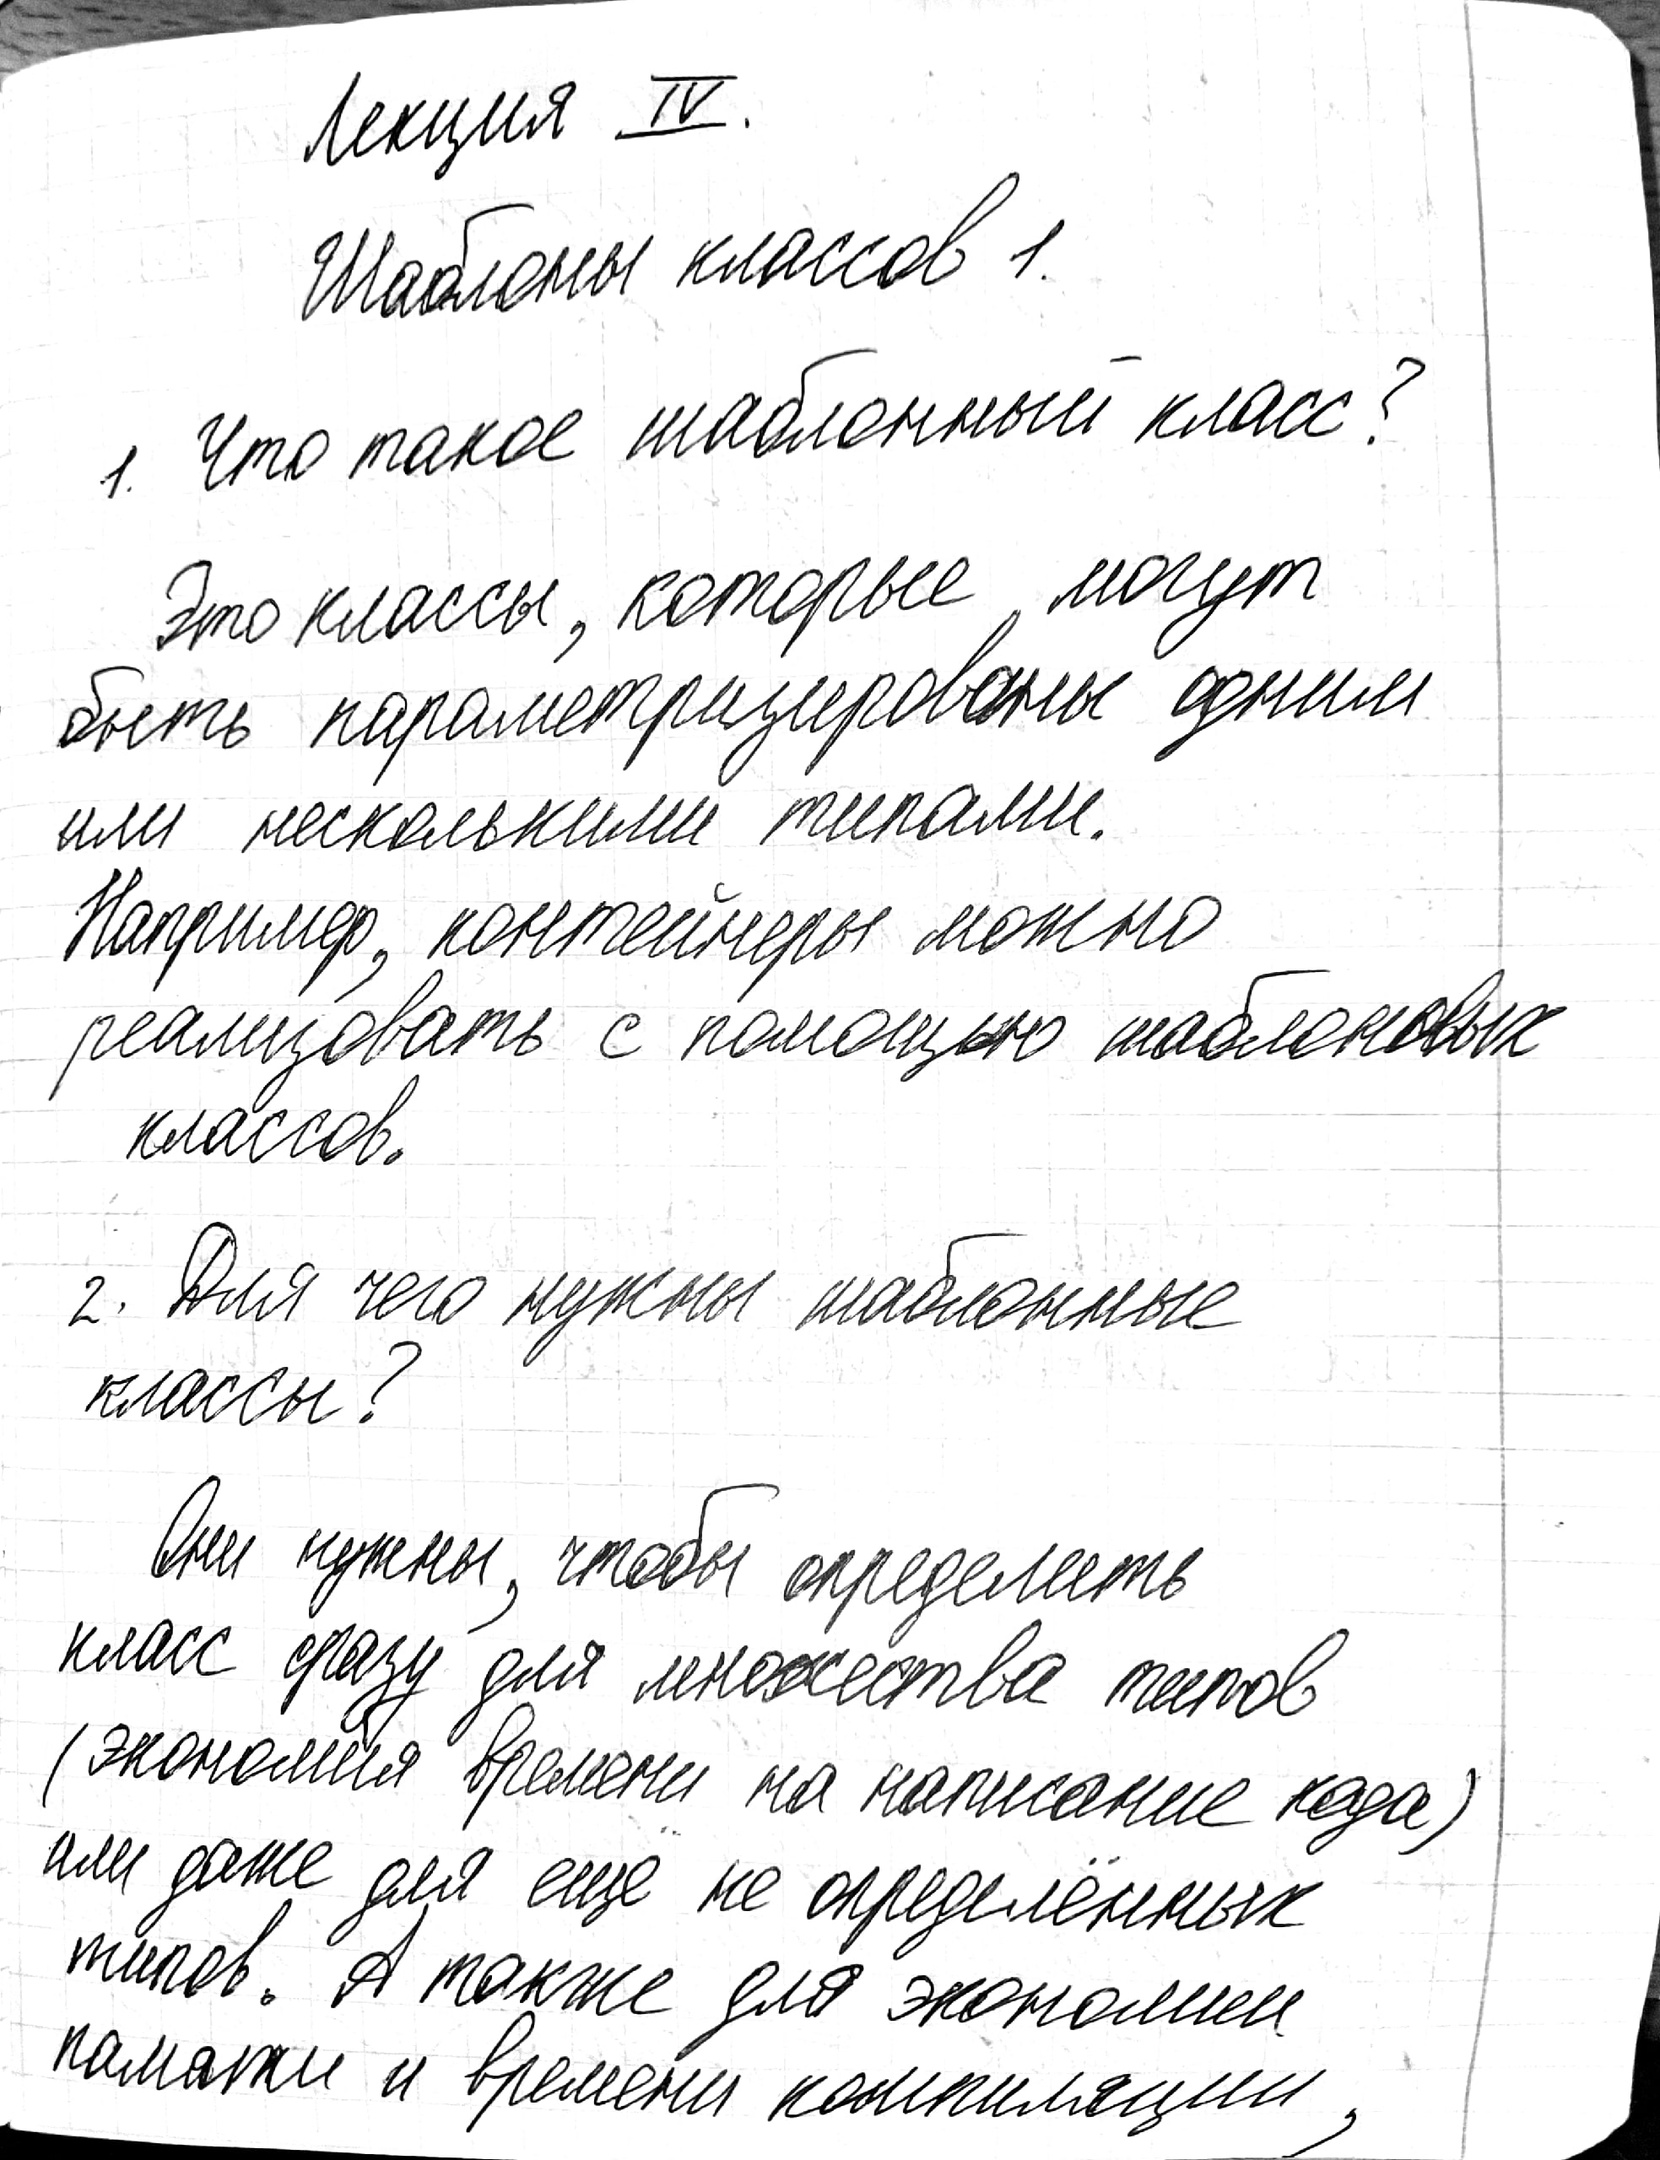 Лекция IV.
Шаблоны классов 1.
1. Что такое шаблонный класс?
Это классы, которые могут
быть параметризированы одним
или несколькими типами.
Например, контейнеры можно
реализовать с помощью шаблоновых
классов.
2. Для чего нужны шаблонные
классы?
Они нужны, чтобы определить
класс сразу для множества типов
(экономия времени на написание кода)
или даже для ещё не определённых
типов. А также для экономии
памяти и времени компиляции,